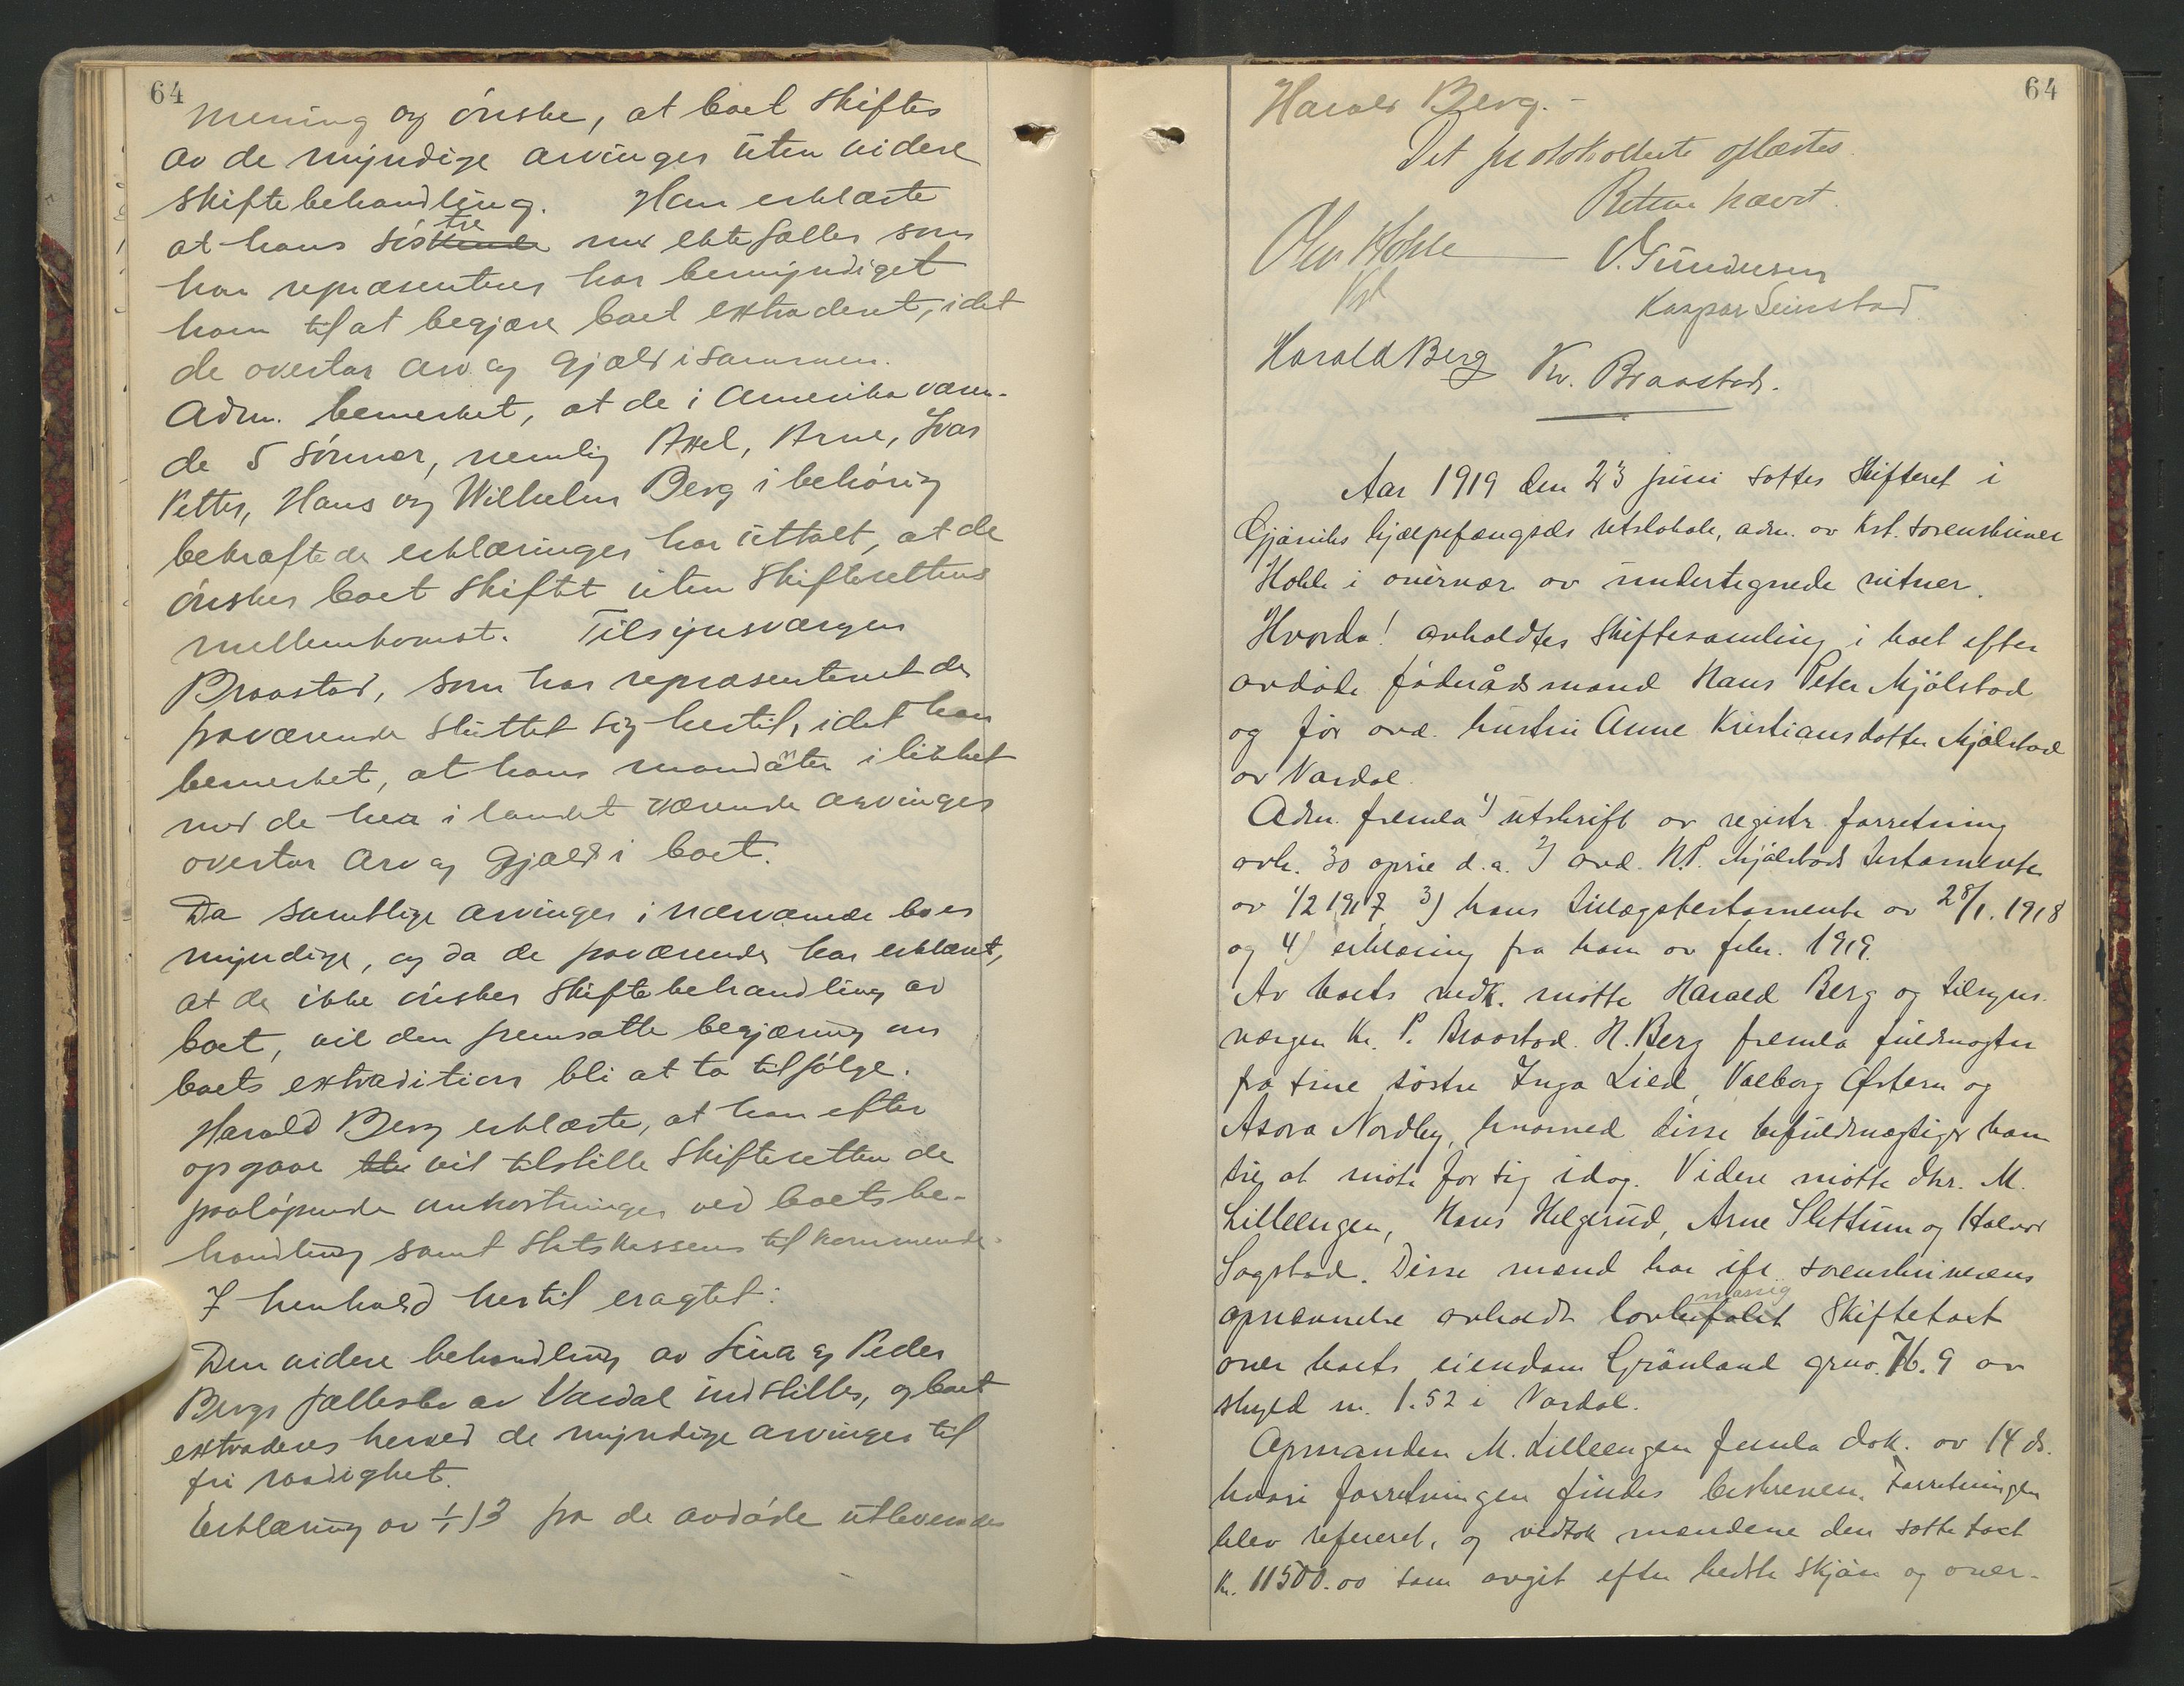 64
mening og ønske, at boet skiftes
av de myndige arvinger uten videre
skiftebehandling. Han erklærte
at hans søstre med ektefæller som
han repræsenterer har bemyndiget
ham til at begjære boet extraderet, idet
de overtar arv og gjæld i sammen.
Adm. bemerket, at de i Amerika væren-
de 5 sønner, nemlig Axel, Arne, Ivar
Petter, Hans og Wilhelm Berg i behørig
bekræftede erklæringer har uttalt, at de
ønsker boet skiftet uten skifterettens
mellemkomst. Tilsynsværgen
Braastad, som har repræsenteret de
fraværende sluttet sig hertil, idet han
bemerket, at hans mandanter i likhet
med de her i landet værende arvinger
overtar arv og gjæld i boet.
Da samtlige arvinger i nærværende bo er
myndige, og da de fraværende har erklært,
at de ikke ønsker skiftebehandling av
boet, vil den fremsatte begjæring om
boets extradition bli at ta tilfølge.
Harald Berg erklærte, at han efter
opgave vil tilstille skifteretten de
paaløpende omkostninger ved boets be-
handling samt statskassens tilkommende.
I henhold hertil eragtet:
Den videre behandling av Lina og Peder
Bergs fællesbo av Vardal indstilles, og boet
extraderes herved de myndige arvinger til
fri raadighet.
Erklæring av 1/1 13 fra de avdøde utleverades
64
Harald Berg. -
Det protokollerte oplæstes.
Retten hævet.
Olav Hohle V. Gundersen
Kst Kaspar Seinstad
Harald Berg Kr. Braastad.
Aar 1919 den 23 juni sattes skifteret i
Gjøviks hjælpefængsels retslokale, adm. av kst. sorenskriver
Hohle i overvær av undertegnede vitner.
Hvorda! avholdtes skiftesamling i boet efter
avdøde føderådsmand Hans Peter Mjølstad
og før avd. hustru Anne Kristiansdatter Mjølstad
av Vardal.
Adm. fremla 1) utskrift av registr. forretning
avh. 30 april d.a. 2) avd. H.P. Mjølstads testamente
av 1/2 1917 3) hans tillægstestamente av 28/1. 1918
og 4) erklæring fra ham av febr. 1919.
Av boets vedk. møtte Harald Berg og tilsyns-
værgen Kr. P. Braastad. H. Berg fremla fuldmagter
fra sine søstre Inga Lied, Valborg Østern og
Asora Nordby, hvormed disse befuldmægtiger ham
til at møte for sig idag. Videre møtte dhr. M.
Lilleengen, Hans Helgerud, Arne Slettum og Halvor
Sogstad. Disse mænd har ifl. sorenskriverens
opnævnelse avholdt lovmæssig skiftetakst
over boets eiendom Grønland grno. 76.9 av
skyld m. 1.52 i Vardal.
Opmanden M. Lilleengen fremla dok. av 14 ds.
hvori forretningen findes beskreven. Forretningen
blev referert, og vedtok mændene den satte takst
kr. 11500.00 som avgit efter bedste skjøn og over-